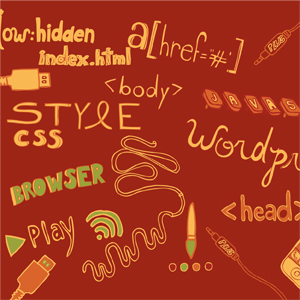 ow:hidden
a[href='#']
index.html
<body>
JAVAS
STYLE
CSS
Wordpr
BROWSER
<head>
Play
www